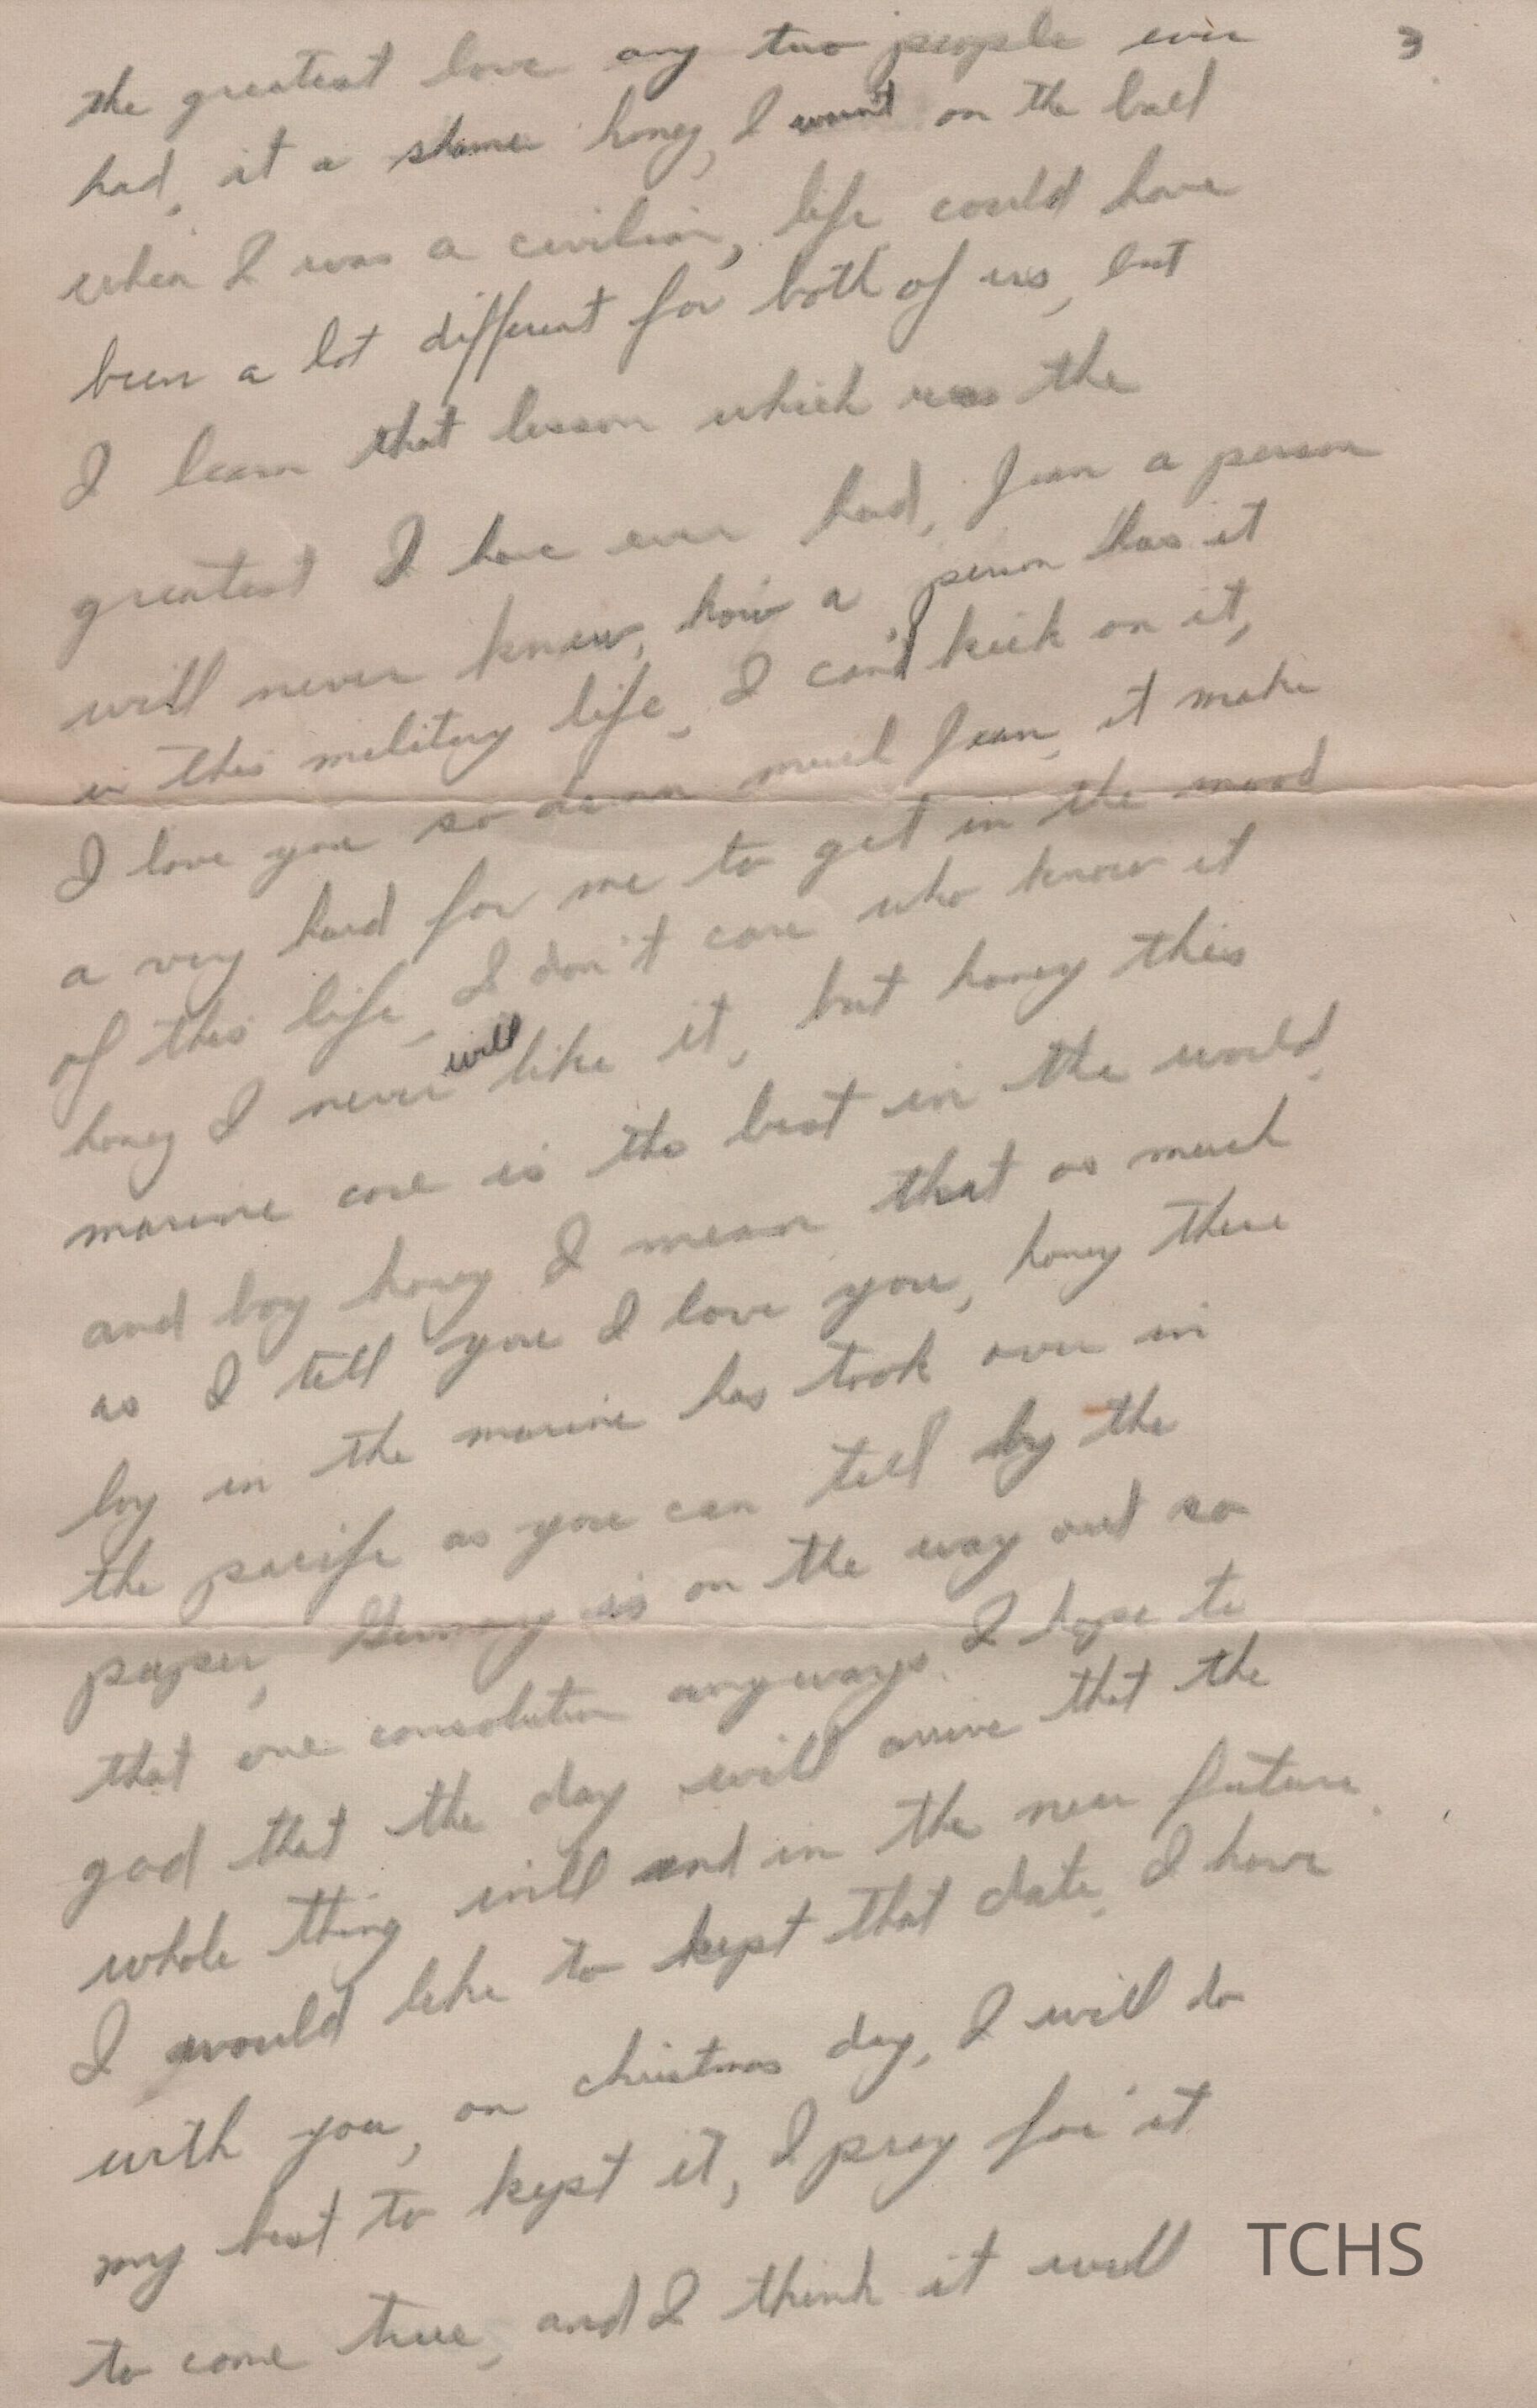 3
the greatest love any two people ever
had, it a shame honey, I wasn't on the ball
when I was a civilian, life could have
been a lot different for both of us, but
I learn that lesson which was the
greatest I have ever had, Jean a person
will never know, how a person has it
in this military life, I can't kick on it,
I love you so damn much Jean, it make
a very hard for me to get in the mood
of this life, I don't care who know it
honey I never will like it, but honey this
marine core is the best in the world,
and boy honey I mean that as much
as I tell you I love you, honey these
boy in the marine has took over in
the pacific as you can tell by the
paper, Germany is on the way out so
that one consolation anyways. I hope to
god that the day will arrive that the
whole thing will end in the near future.
I would like to kept that date, I have
with you, on christmas day, I will do
my best to kept it, I pray for it
to come true, and I think it will
TCHS